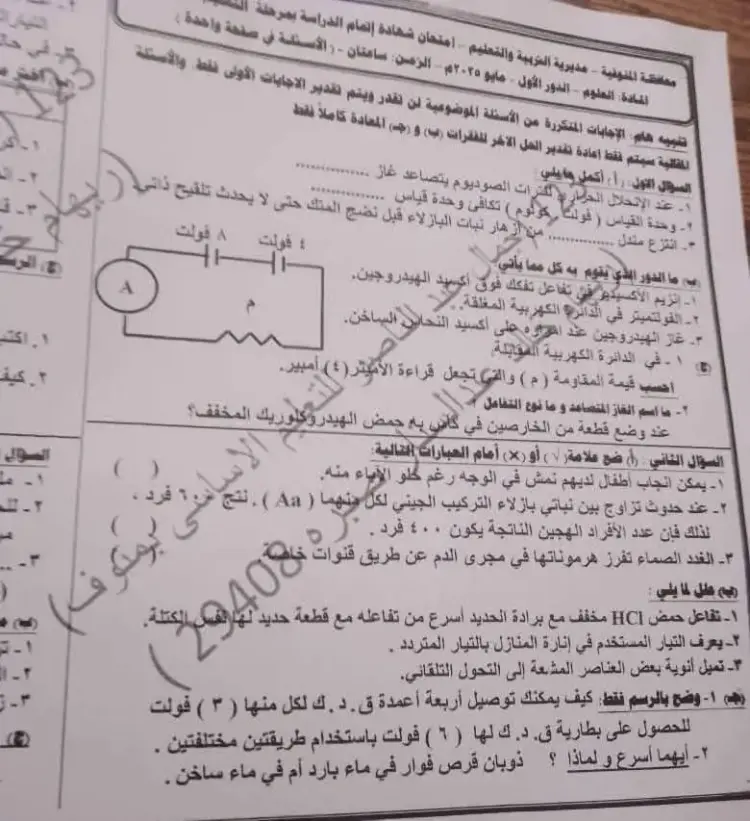 محافظة المنوفية – مديرية التربية والتعليم – امتحان شهادة إتمام الدراسة بمرحلة التعليم
المادة: العلوم – الدور الأول – مايو ٢٠٢٥م – الزمن: ساعتان – ( الأسئلة في صفحة واحدة )
تنبيه هام: الإجابات المتكررة من الأسئلة الموضوعية لن تقدر ويتم تقدير الاجابات الأولى فقط والأسئلة
المقالية سيتم فقط إعادة تقدير الحل الآخر للفقرات (ب) و (جـ) المعادة كاملاً فقط
السؤال الأول : أ) أكمل ما يلي :
١- عند الإنحلال الحراري لنترات الصوديوم يتصاعد غاز ...............
٢- وحدة القياس ( فولت . كولوم ) تكافئ وحدة قياس ...............
٣- انتزع مندل ............... من أزهار نبات البازلاء قبل نضج المتك حتى لا يحدث تلقيح ذاتي
(ب) ما الدور الذي يقوم به كل مما يأتي :
١- إنزيم الأكسيديز في تفاعل تفكك فوق أكسيد الهيدروجين.
٢- الفولتميتر في الدائرة الكهربية المغلقة.
٣- غاز الهيدروجين عند امراره على أكسيد النحاس الساخن.
(ج) ١- في الدائرة الكهربية المقابلة:
احسب قيمة المقاومة ( م ) والتي تجعل قراءة الأميتر (٤) أمبير.
٨ فولت
٤ فولت
A
م
٢- ما اسم الغاز المتصاعد و ما نوع التفاعل
عند وضع قطعة من الخارصين في كأس به حمض الهيدروكلوريك المخفف؟
السؤال الثاني : (أ) ضع علامة (√) أو (×) أمام العبارات التالية:
١- يمكن انجاب أطفال لديهم نمش في الوجه رغم خلو الآباء منه. ( )
٢- عند حدوث تزاوج بين نباتي بازلاء التركيب الجيني لكل منهما ( Aa ) . نتج ٦٠٠ فرد ،
لذلك فإن عدد الأفراد الهجين الناتجة يكون ٤٠٠ فرد . ( )
٣- الغدد الصماء تفرز هرموناتها في مجرى الدم عن طريق قنوات خاصة ( )
(ب) علل لما يلي :
١- تفاعل حمض HCl مخفف مع برادة الحديد أسرع من تفاعله مع قطعة حديد لها نفس الكتلة.
٢- يعرف التيار المستخدم في إنارة المنازل بالتيار المتردد .
٣- تميل أنوية بعض العناصر المشعة إلى التحول التلقائي.
(جـ) ١- وضح بالرسم فقط: كيف يمكنك توصيل أربعة أعمدة ق . د . ك لكل منها ( ٣ ) فولت
للحصول على بطارية ق . د . ك لها ( ٦ ) فولت باستخدام طريقتين مختلفتين .
٢- أيهما أسرع و لماذا ؟ ذوبان قرص فوار في ماء بارد أم في ماء ساخن .
29408